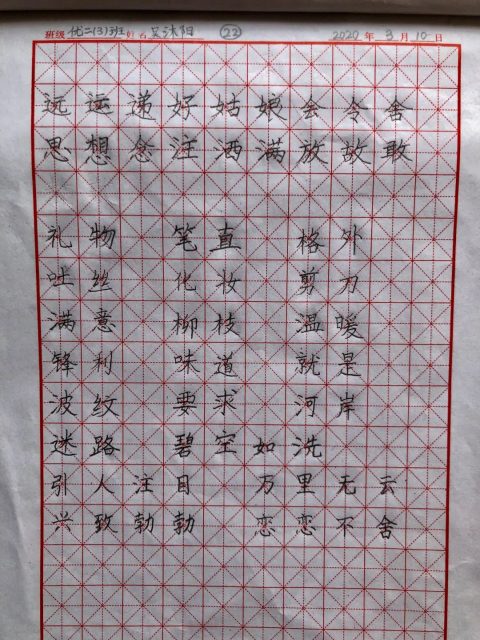 班级 优二(3)班 姓名 吴沐阳 22 2020年3月10日
远 运 递 好 姑 娘 会 令 舍
思 想 念 注 洒 满 放 故 敢
礼物 笔直 格外
吐丝 化妆 剪刀
满意 柳枝 温暖
锋利 味道 就是
波纹 要求 河岸
迷路 碧空如洗
引人注目 万里无云
兴致勃勃 恋恋不舍